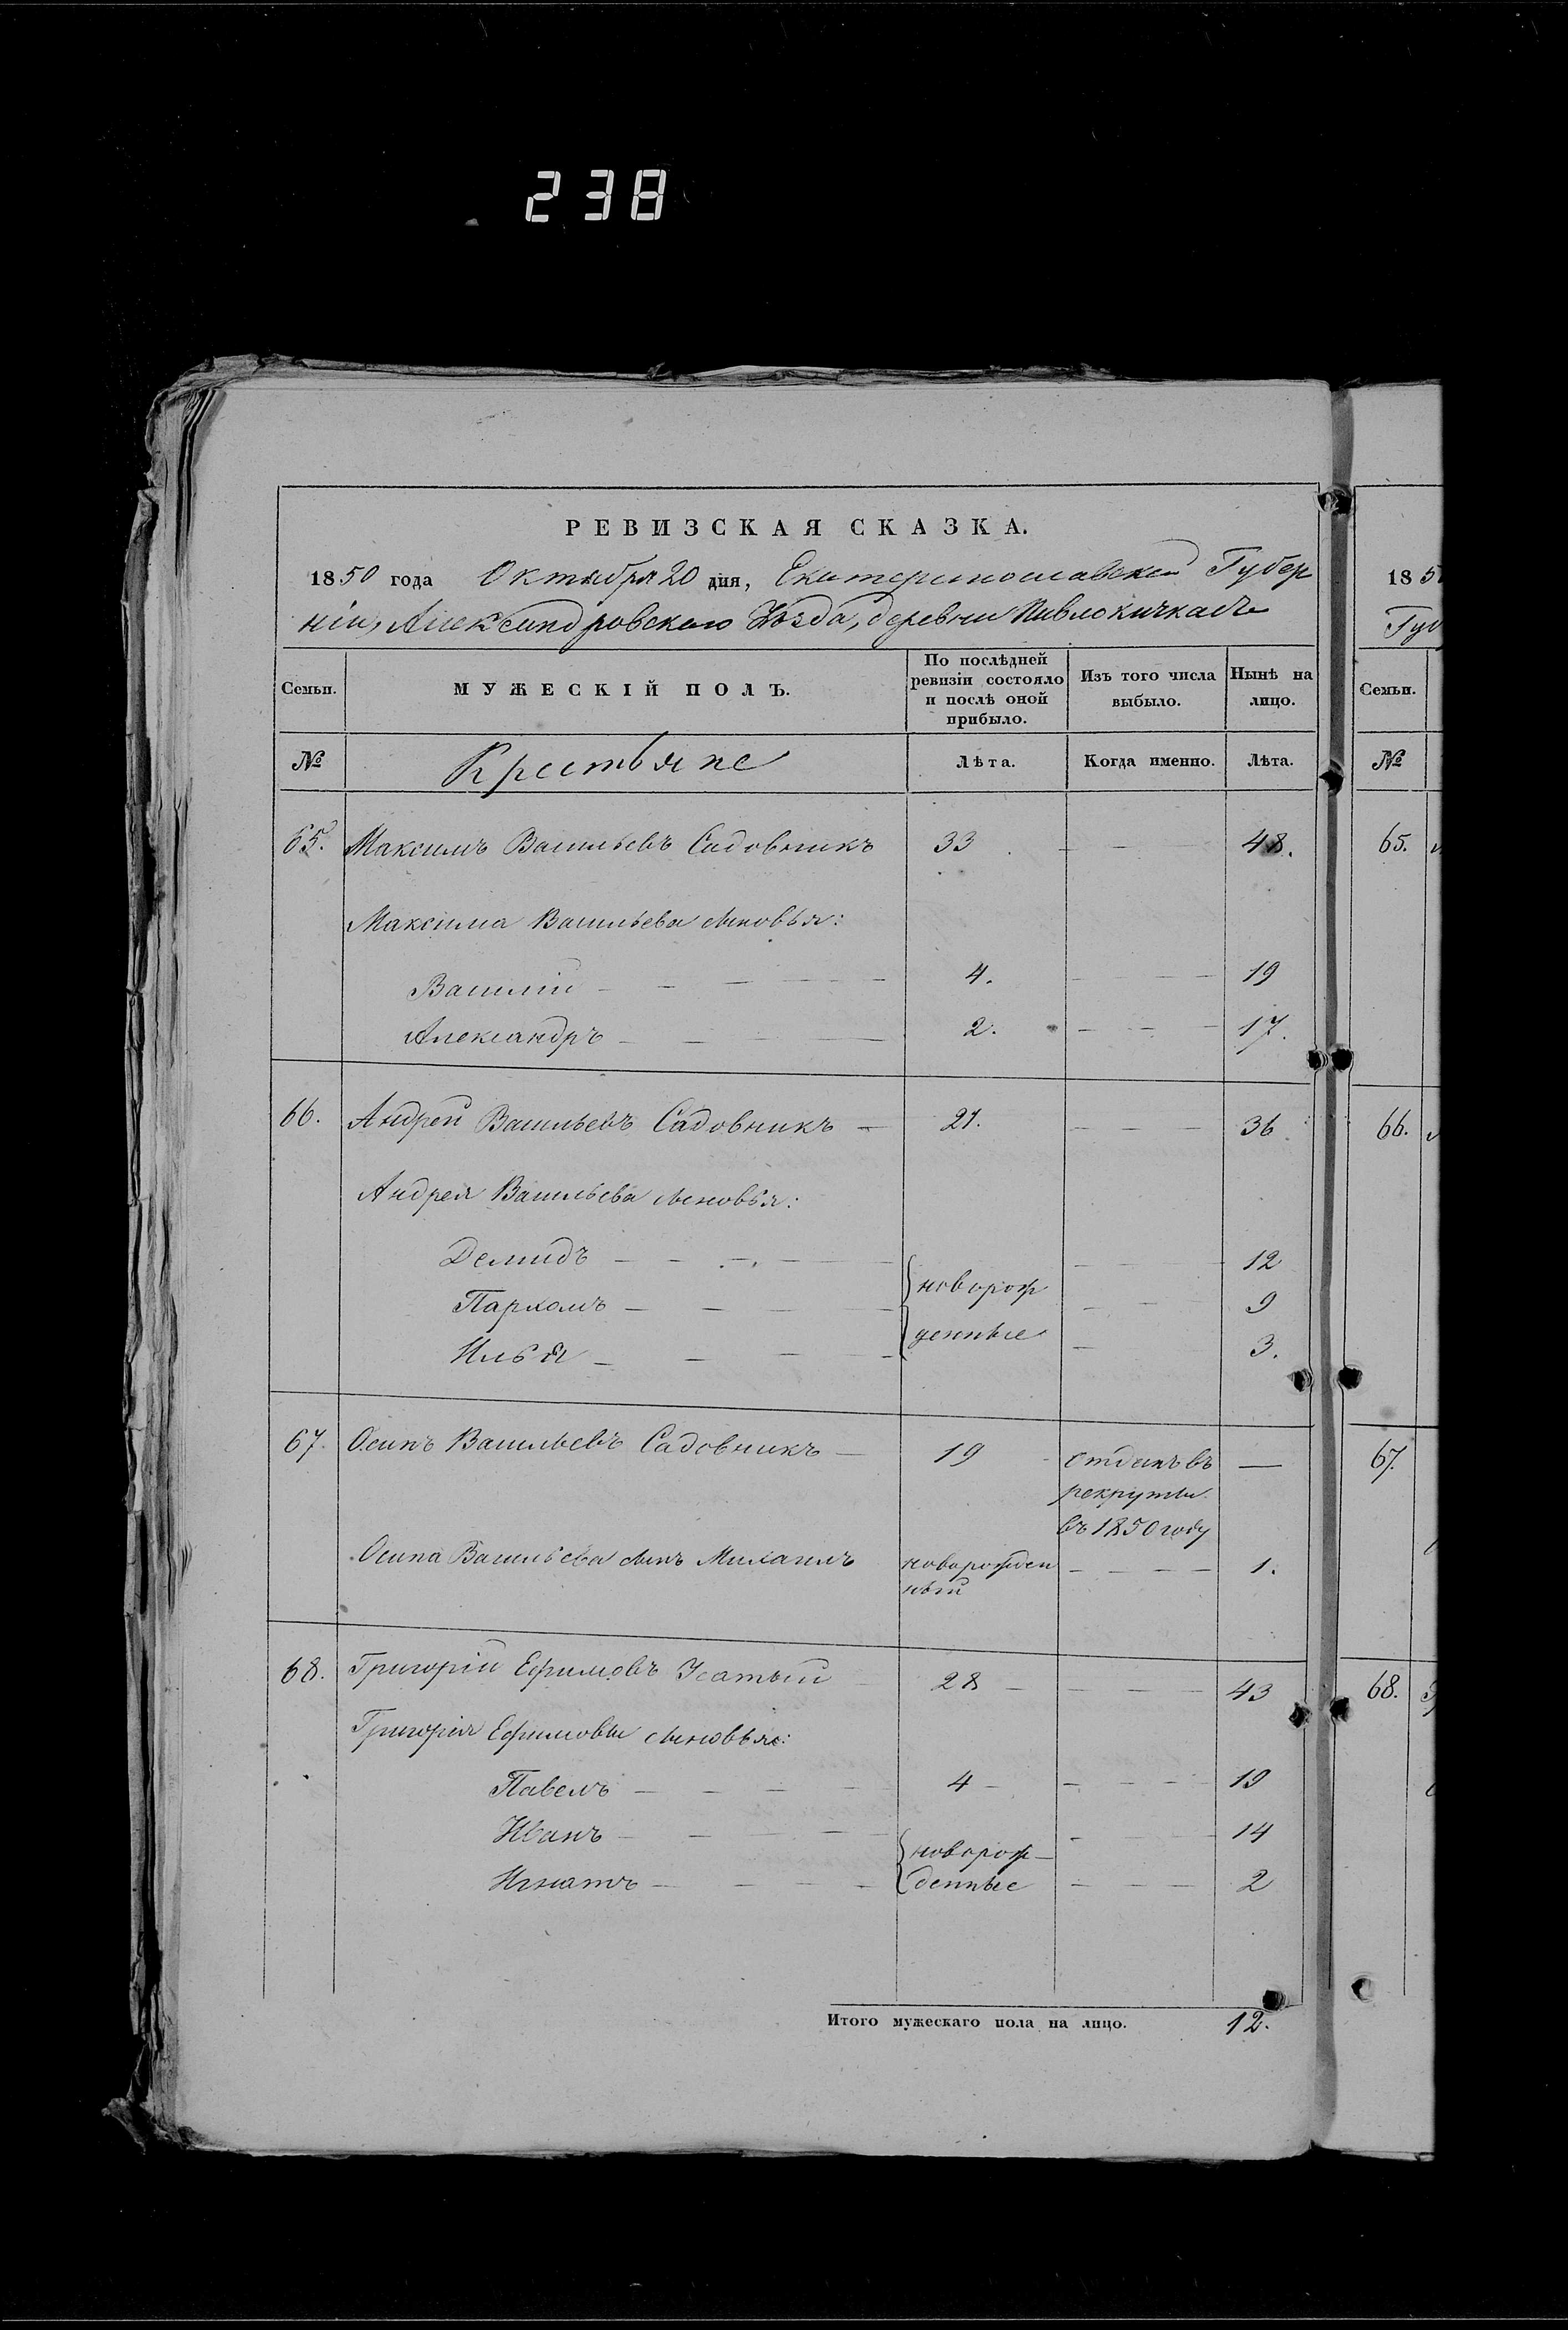 238
РЕВИЗСКАЯ СКАЗКА.
1850 года Октября 20 дня, Екатеринославской Губер
ніи, Александровскаго Уѣзда, деревни Павлокичкасъ
Семьи.
МУЖЕСКІЙ ПОЛЪ.
По послѣдней
ревизіи состояло
и послѣ оной
прибыло.
Изъ того числа
выбыло.
Нынѣ на
лицо.
№ Крестьяне Лѣта. Когда именно. Лѣта.
65. Максимъ Васильевъ Садовникъ 33 48.
Максима Васильева сыновья:
Василій 4. 19
Александръ 2. 17.
66. Андрей Васильевъ Садовникъ 21. 36
Андрея Васильева сыновья:
Демидъ 12
новорож
Пархомъ 9
денные
Илья 3.
67. Осипъ Васильевъ Садовникъ 19 отданъ въ
рекруты
въ 1850 году
Осипа Васильева сынъ Михаилъ новорожден 1.
ный
68. Григорій Ефимовъ Усатый 28 43
Григорія Ефимова сыновья:
Павелъ 4 19
Иванъ 14
новорож
Игнатъ денные 2
Итого мужескаго пола на лицо. 12.
185
Гу
Семьи.
№
65.
66.
67.
68.